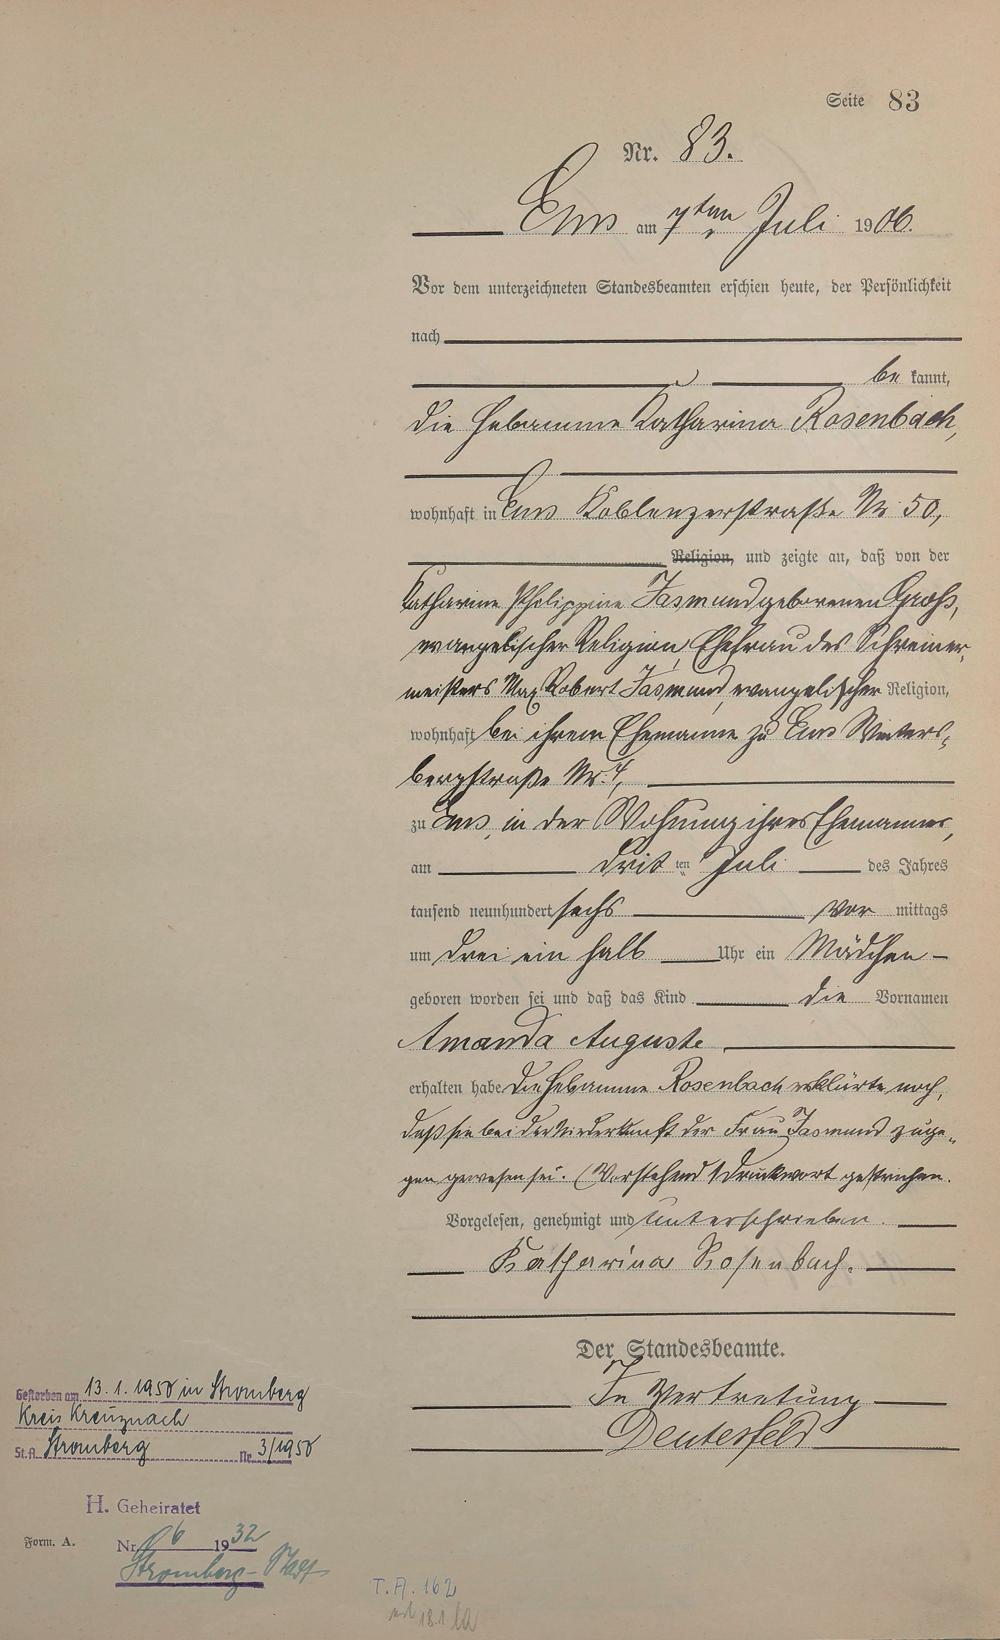 Seite 83
Nr. 83.
Ems am 7ten Juli 1906.
Vor dem unterzeichneten Standesbeamten erschien heute, der Persönlichkeit
nach
be kannt,
die Hebamme Katharina Rosenbach,
wohnhaft in Ems Koblenzerstraße Nr 50,
Religion, und zeigte an, daß von der
Katharine Philippine Jasmund geborenen Groß,
evangelischer Religion, Ehefrau des Schreiner-
meisters Max Robert Jasmund, evangelischer Religion,
wohnhaft bei ihrem Ehemanne zu Ems Winters-
bergstraße Nr. 4,
zu Ems, in der Wohnung ihres Ehemannes,
am drit ten Juli des Jahres
tausend neunhundert sechs vor mittags
um drei ein halb Uhr ein Mädchen
geboren worden sei und daß das Kind die Vornamen
Amanda Auguste
erhalten habe. Die Hebamme Rosenbach erklärte noch,
daß sie bei der Niederkunft der Frau Jasmund zuge-
gen gewesen sei. (Vorstehend 1 Druckwort gestrichen.
Vorgelesen, genehmigt und unterschrieben.
Katharina Rosenbach.
Der Standesbeamte.
In Vertretung
Deutesfeld
Gestorben am 13. 1. 1958 in Stromberg
Kreis Kreuznach
St.A. Stromberg Nr. 3/1958
H. Geheiratet
Form. A.
Nr. 6 1932
Stromberg-
T. A. 162
18.1